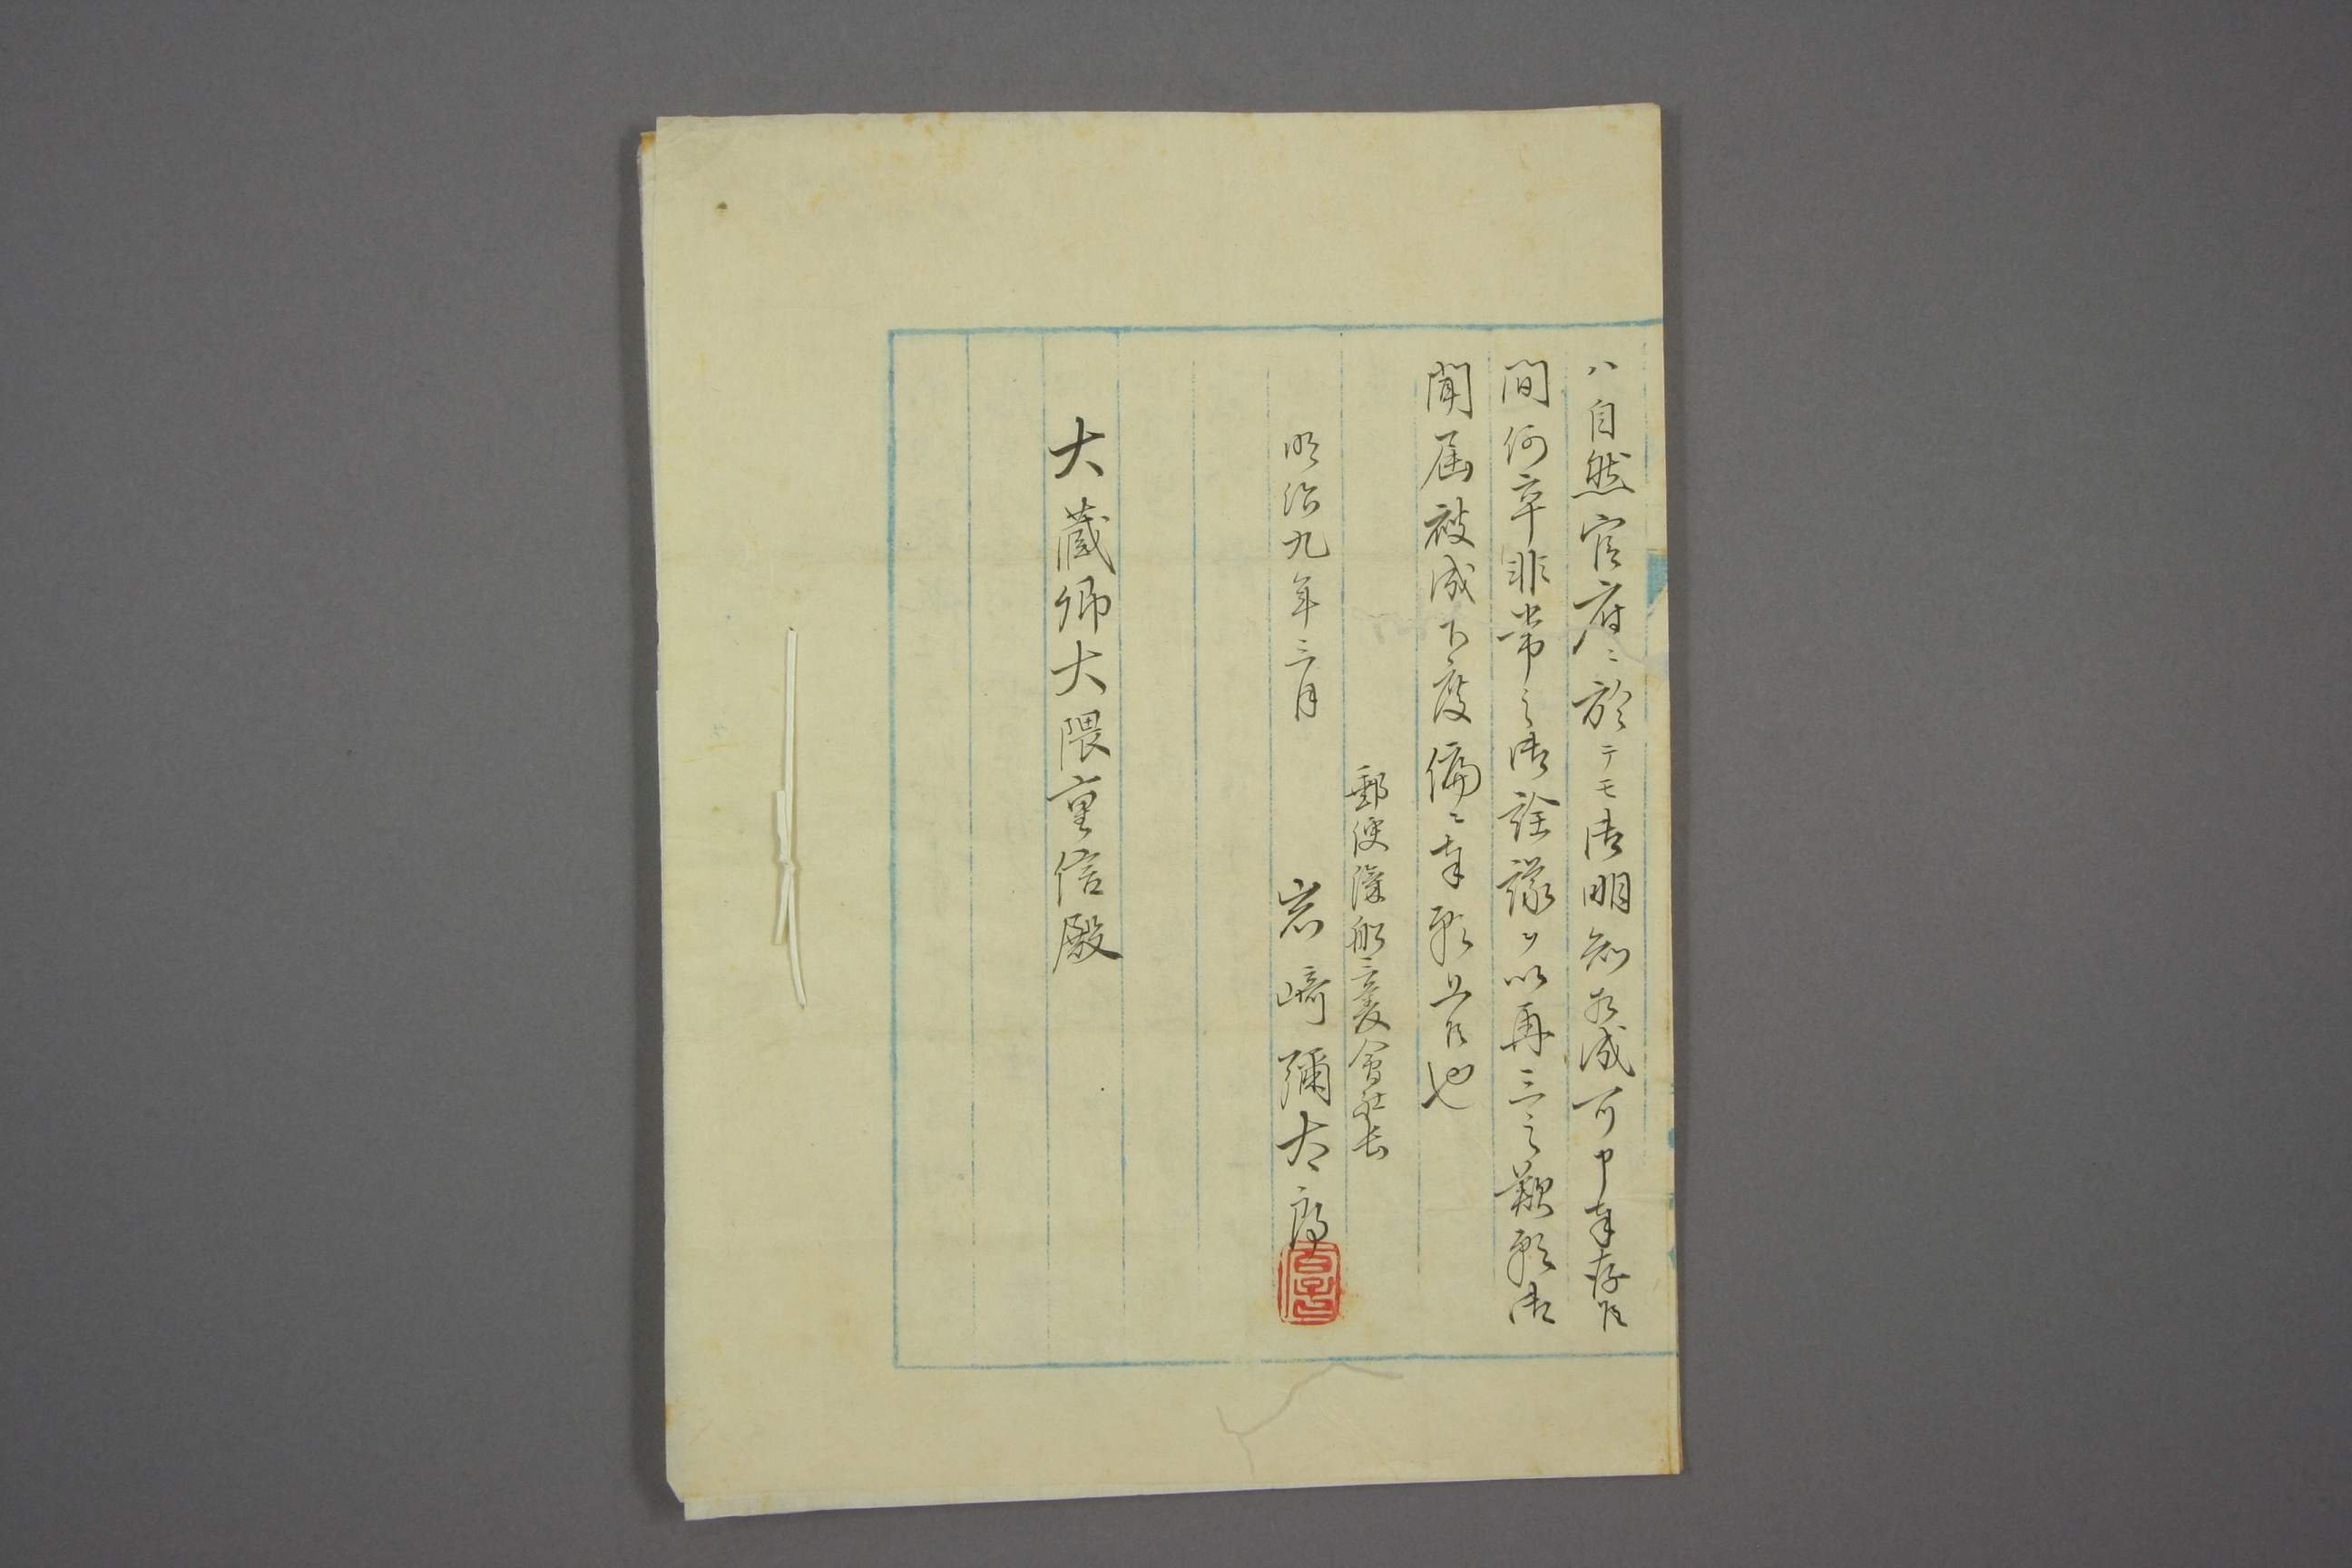 ハ自然官府ニ於テモ御明知相成可申奉存候
間何卒非常之御詮議ヲ以再三之歎願御
聞届被成下度偏ニ奉願上候也
郵便滊船三菱會社長
明治九年三月 岩﨑彌太郎
大蔵卿大隈重信殿